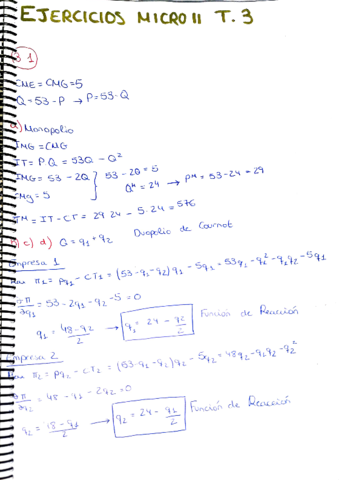 EJERCICIOS MICRO II T.3
3.1
CME = CMG = 5
Q = 53 - P → P = 53 - Q
a) Monopolio
IMG = CMG
IT = P·Q = 53Q - Q²
IMG = 53 - 2Q } 53 - 2Q = 5
CMg = 5 Qᴹ = 24 → Pᴹ = 53 - 24 = 29
πᴹ = IT - CT = 29·24 - 5·24 = 576
b) c) d) Q = q₁ + q₂ Duopolio de Cournot
Empresa 1
Max π₁ = pq₁ - CT₁ = (53 - q₁ - q₂) q₁ - 5q₁ = 53q₁ - q₁² - q₁q₂ - 5q₁
∂π/∂q₁ = 53 - 2q₁ - q₂ - 5 = 0
q₁ = 48 - q₂/2 → q₁ = 24 - q₂/2 Función de Reacción
Empresa 2
Max π₂ = pq₂ - CT₂ = (53 - q₁ - q₂) q₂ - 5q₂ = 48q₂ - q₁q₂ - q₂²
∂π/∂q₂ = 48 - q₁ - 2q₂ = 0
q₂ = 48 - q₁/2 → q₂ = 24 - q₁/2 Función de Reacción